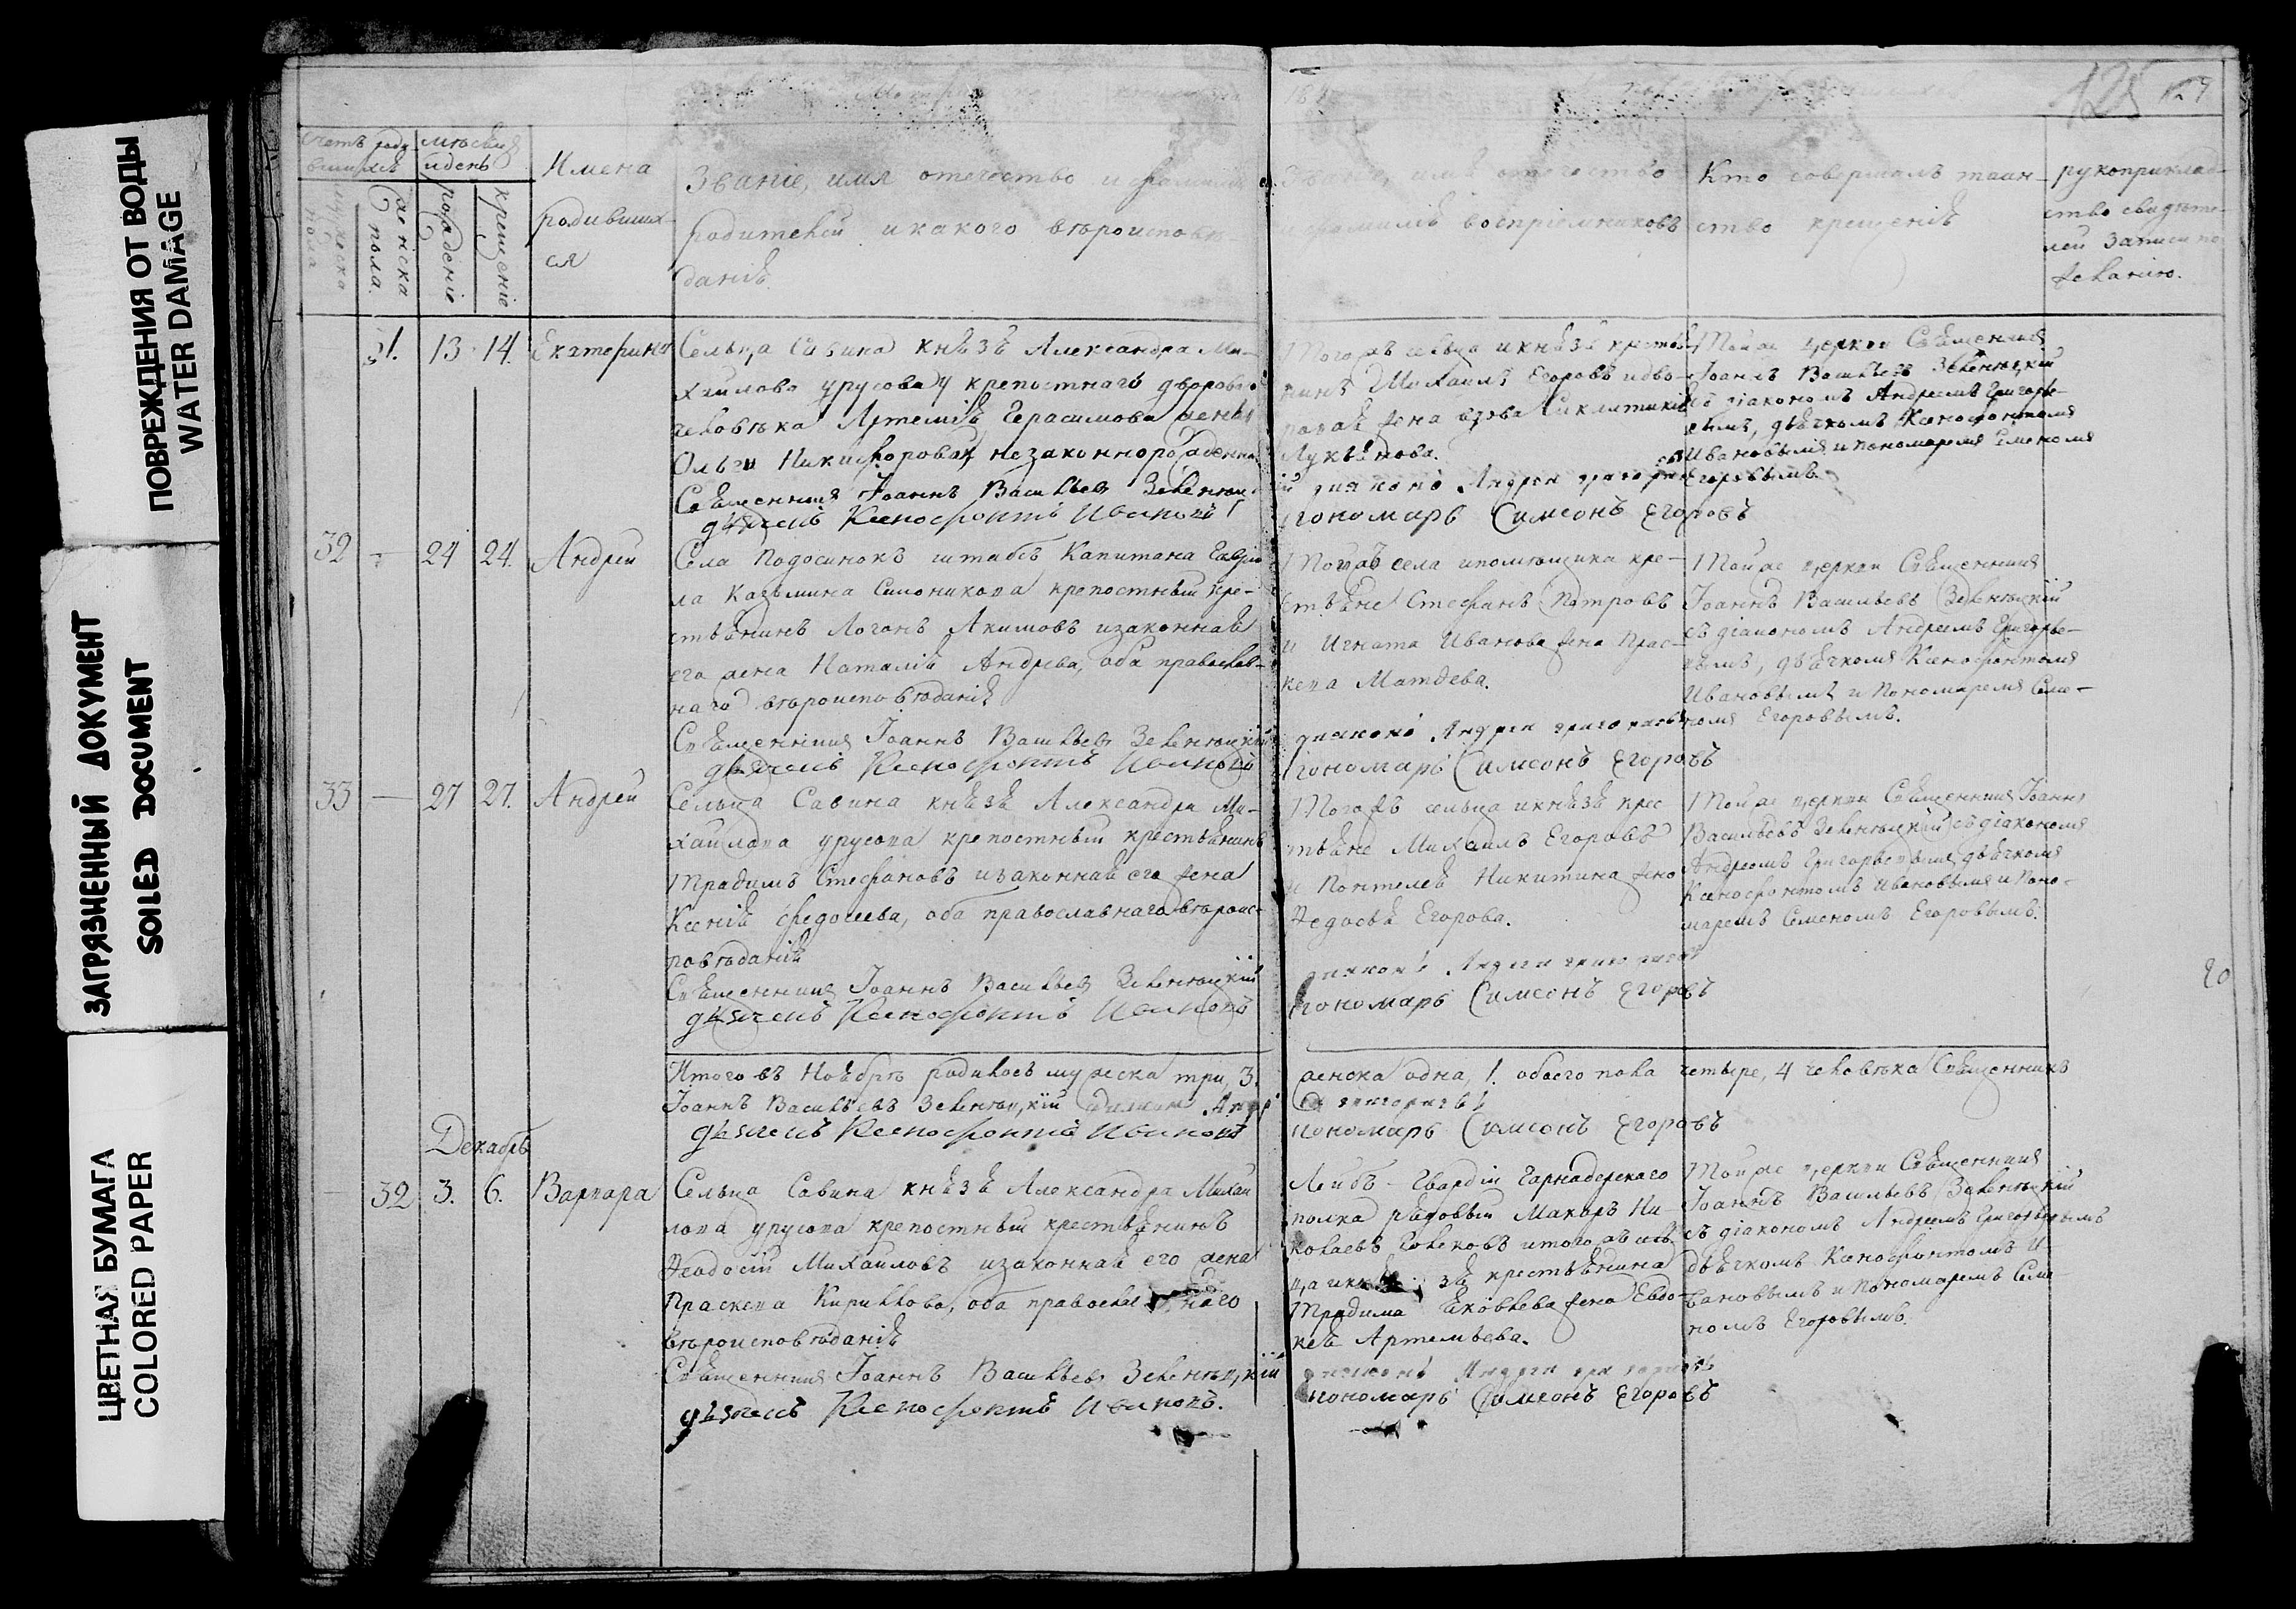 ПОВРЕЖДЕНИЯ ОТ ВОДЫ
WATER DAMAGE
ЗАГРЯЗНЕННЫЙ ДОКУМЕНТ
SOILED DOCUMENT
ЦВЕТНАЯ БУМАГА
COLORED PAPER
125
Счетъ роди
вшихся
муҗеска пола
женска пола.
мѣсяцъ
и день
рождение
крещение
Имена
родивших-
ся
Званіе, имя отечество и фамилия
родителей и какого вѣроиспове-
данія.
Званіе, имя отечество
и фамилія воспріемниковъ
Кто совершалъ таин-
ство крещенія
рукоприклад-
ство свидѣте-
лей записи по
желанію.
31. 13 14. Екатерина
Сельца Савина Князя Александра Ми-
хайлова Урусова у крепостнаго дворова
человѣка Артемія Герасимова жены
Ольги Никифоровой незаконнорожденна
Священникъ Іоаннъ Васильевъ Зеленецкій
дьячекъ Ксенофонтъ Ивановъ
Тогожъ сельца и князя крестья-
нинъ Михаилъ Егоровъ и дво-
ровая жена вдова
Лукьянова.
диаконъ Андрей Григорьевъ
пономарь Симеонъ Егоровъ
Тойже церкви Священникъ
Іоаннъ Васильевъ Зеленецкій
съ діакономъ Андреемъ Григорье-
вымъ, дьячкомъ Ксенофонтомъ
Ивановымъ и пономаремъ Семеномъ
Егоровымъ.
32 - 24 24. Андрей
Села Подосинокъ штабсъ Капитана Гаври
ла Козьмина крепостный кре-
стьянинъ Логонъ Акимовъ и законная
его жена Наталія Андрева, оба православ-
наго вѣроисповѣданія
Священникъ Іоаннъ Васильевъ Зеленецкій
дьячекъ Ксенофонтъ Ивановъ
Тогожъ села и помѣщика кре-
стьяне Стефанъ Петровъ
и Игната Иванова жена Прас-
кева Матвева.
диаконъ Андрей Григорьевъ
пономарь Симеонъ Егоровъ
Тойже церкви Священникъ
Іоаннъ Васильевъ Зеленецкій
съ діакономъ Андреемъ Григорье-
вымъ, дьячкомъ Ксенофонтомъ
Ивановымъ и Пономаремъ Семе-
номъ Егоровымъ.
33 — 27 27. Андрей
Сельца Савина князя Александра Ми-
хайлова Урусова крепостный крестьянинъ
Стефановъ и законная его жена
Ксенія Федосеева, оба православнаго вѣроис-
повѣданія
Священникъ Іоаннъ Васильевъ Зеленецкій
дьячекъ Ксенофонтъ Ивановъ
Тогожъ сельца и князя крес
тьяне Михаилъ Егоровъ
и Пантелея Никитина жена
Федосья Егорова.
диаконъ Андрей Григорьевъ
пономарь Симеонъ Егоровъ
Тойже церкви Священникъ Іоаннъ
Васильевъ Зеленецкій съ діакономъ
Андреемъ Григорьевымъ, дьячкомъ
Ксенофонтомъ Ивановымъ и Поно-
маремъ Семеномъ Егоровымъ.
20
Итого въ Ноябрѣ родилось мужеска три, 3. женска одна, 1. обоего пола четыре, 4 человѣка Священникъ
Іоаннъ Васильевъ Зеленецкій диаконъ Андрей Григорьевъ
дьячекъ Ксенофонтъ Ивановъ пономарь Симеонъ Егоровъ
Декабрь
- 32 3. 6. Варвара
Сельца Савина князя Александра Михай
лова Урусова крепостный крестьянинъ
Феодосій Михайловъ и законная его жена
Праскева Кириллова, оба православнаго
вѣроисповѣданія
Священникъ Іоаннъ Васильевъ Зеленецкій
дьячекъ Ксенофонтъ Ивановъ.
Лейбъ-Гвардіи Гарнадерскаго
полка рядовый Макаръ Ни-
колаевъ и тогожъ сель
ца и князя крестьянина
Яковлева жена Евдо-
кея Артемьева.
диаконъ Андрей Григорьевъ
пономарь Симеонъ Егоровъ
Тойже церкви Священникъ
Іоаннъ Васильевъ Зеленецкій
съ діакономъ Андреемъ Григорьевымъ
дьячкомъ Ксенофонтомъ И-
вановымъ и Пономаремъ Семе
номъ Егоровымъ.